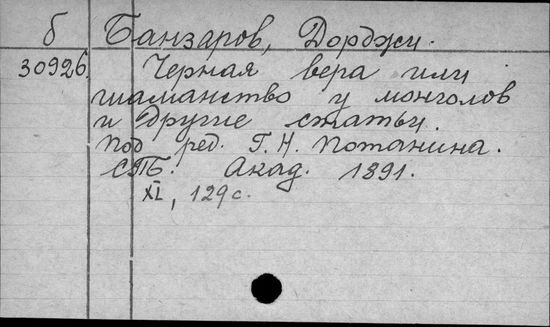 б Банзаров, Дорджи.
30926. Черная вера или
шаманство у монголов
и другие статьи.
Под ред. Г. Н. Потанина.
СПБ. Акад. 1891.
XI, 129 с.